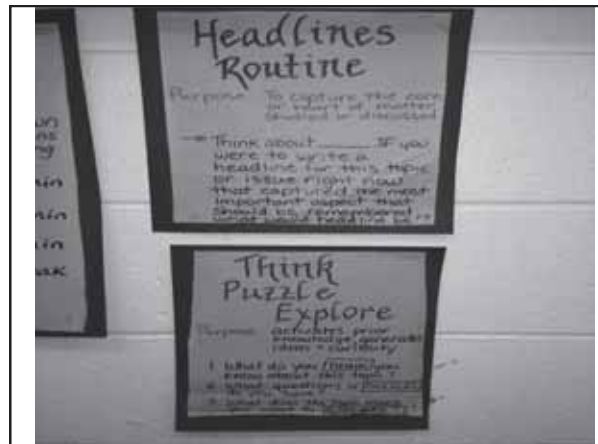 on
ns
ng
min
min
min
ak
Headlines
Routine
Purpose To capture the core
or heart of matter
studied or discussed
Think about ____ If you
were to write a
headline for this topic
or issue right now
that captured the most
important aspect that
should be remembered
what would headline be
Think
Puzzle
Explore
Purpose activates prior
knowledge, generates
ideas + curiosity
1 What do you think you
know about this topic?
2 What questions or puzzles
do you have?
3 What does the topic make